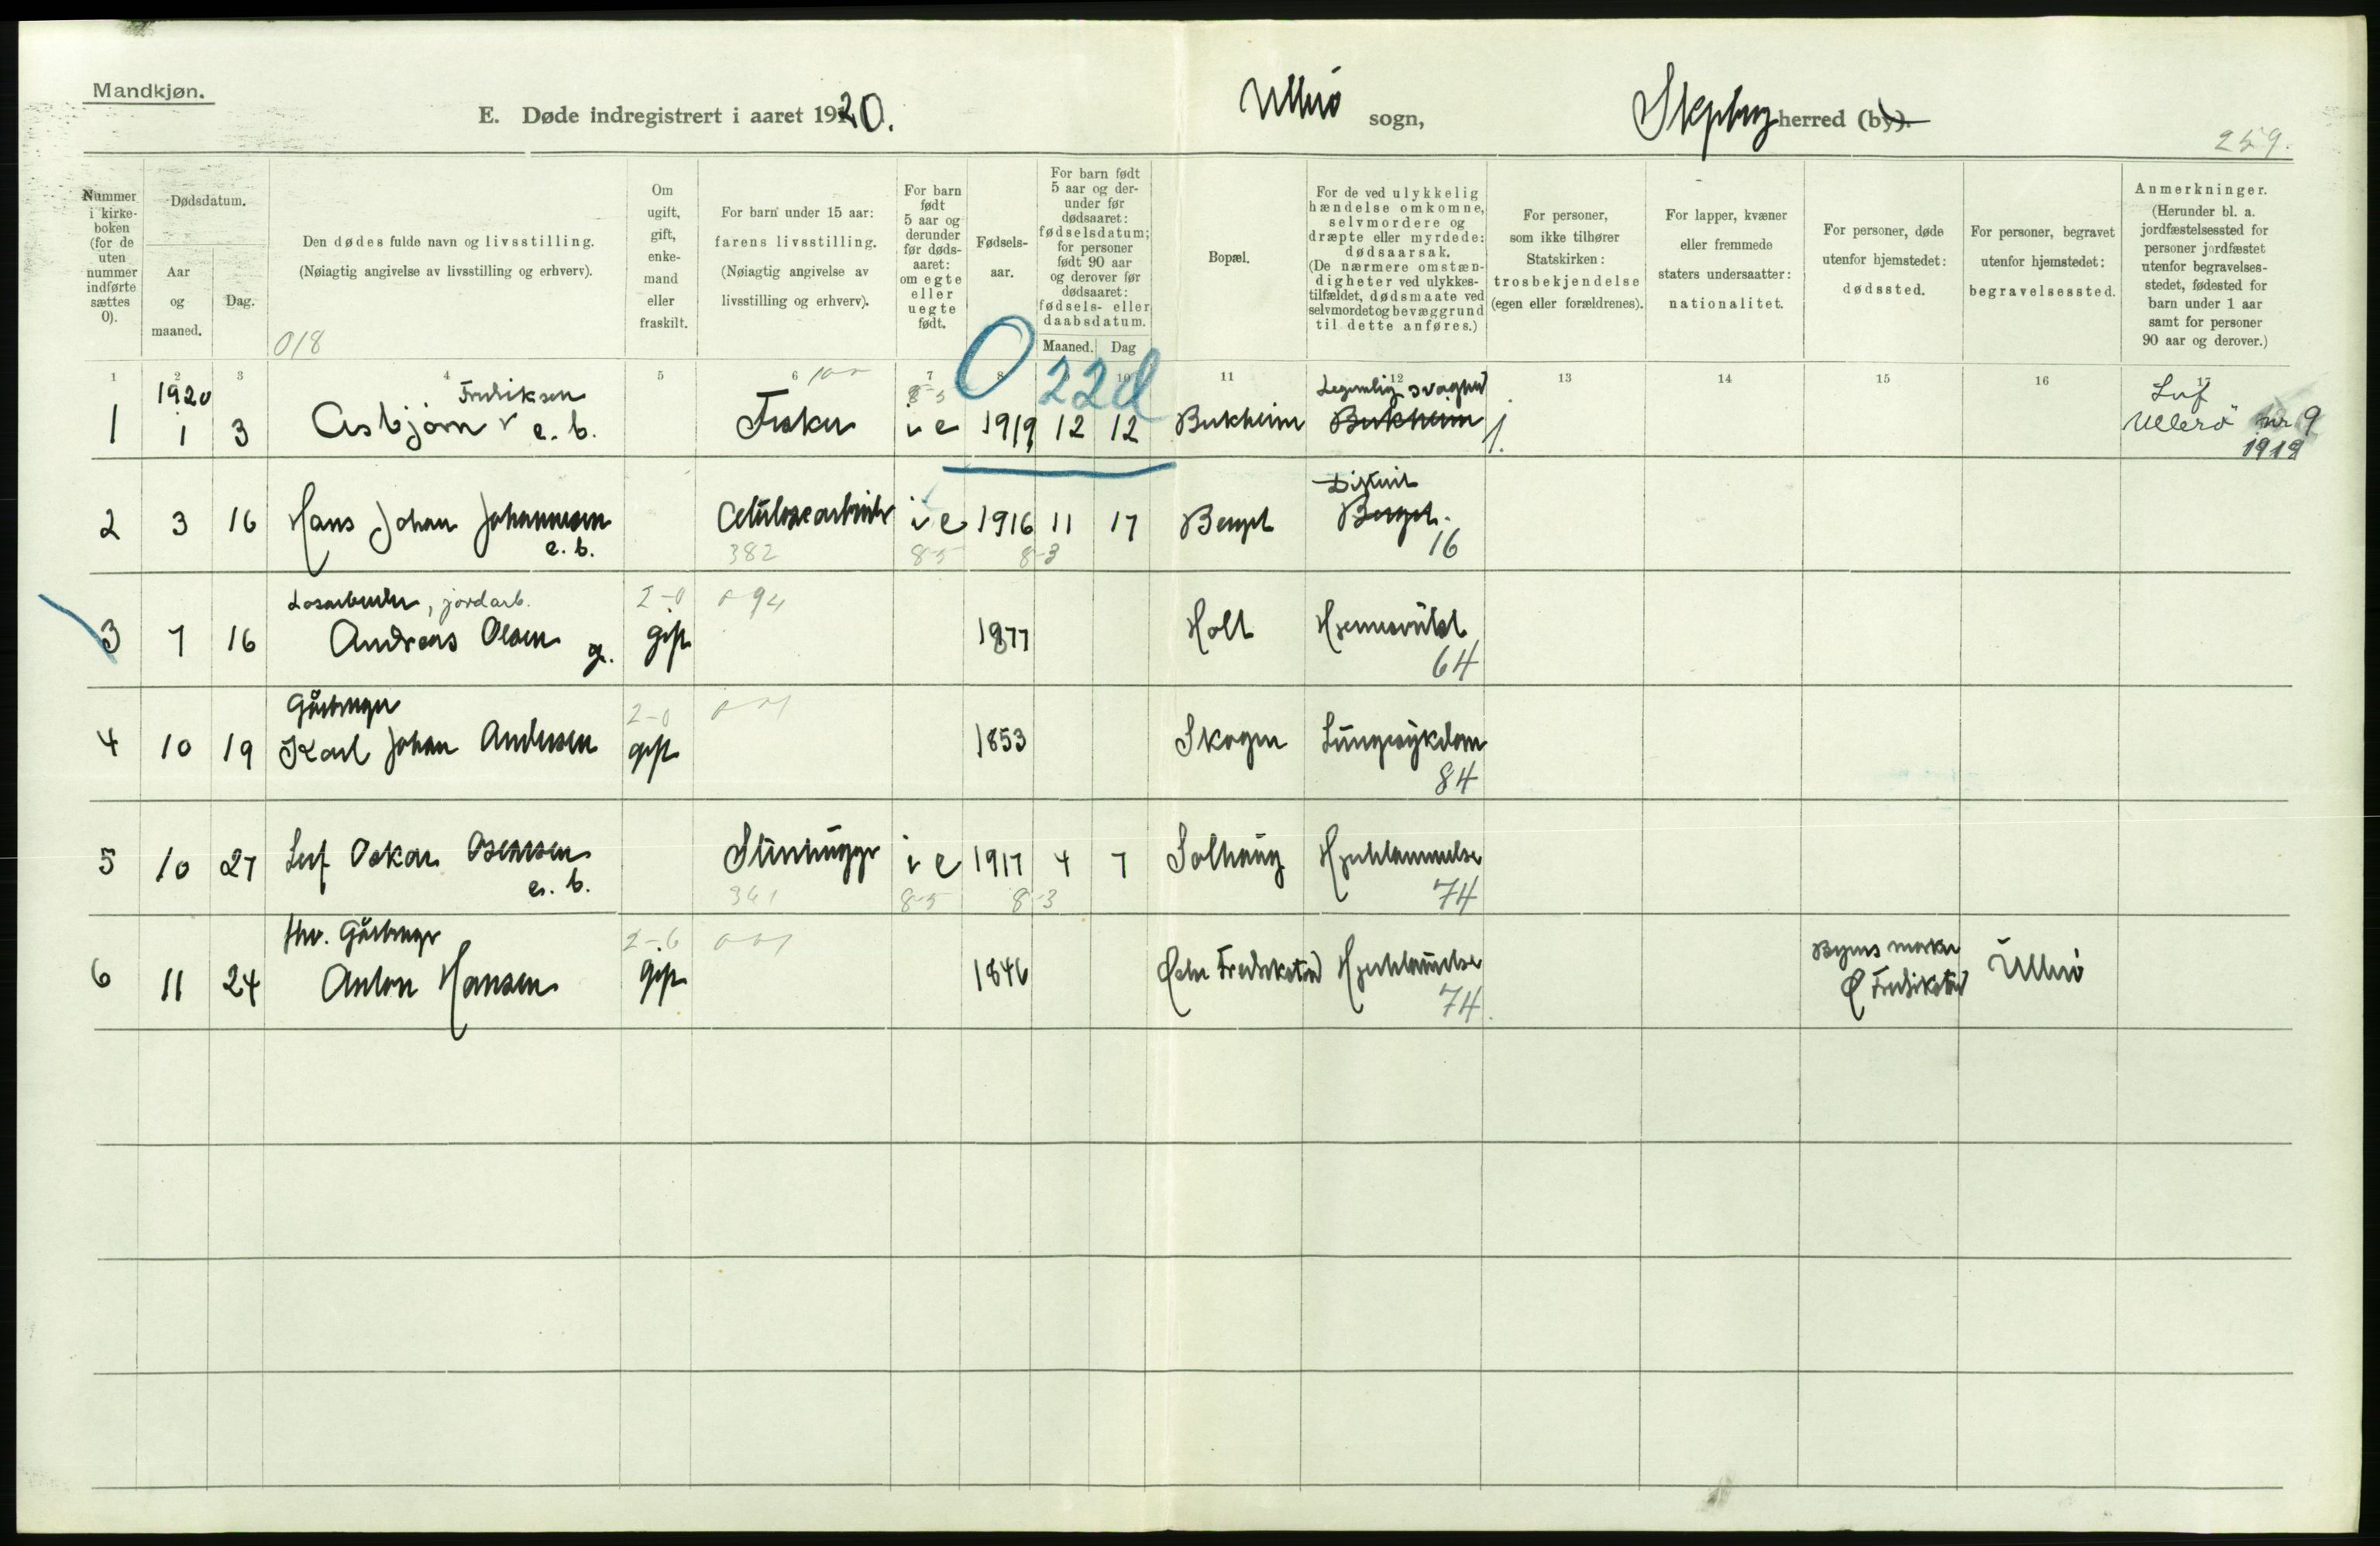 Mandkjøn.
E. Døde indregistrert i aaret 1920.
Ullerø sogn,
Skjeberg herred (by).
259.
Nummer i kirke-boken (for de uten nummer indførte sættes 0).
Dødsdatum.
Aar og maaned.
Dag.
Den dødes fulde navn og livsstilling.
(Nøiagtig angivelse av livsstilling og erhverv).
018
Om ugift, gift, enke-mand eller fraskilt.
For barn under 15 aar: farens livsstilling.
(Nøiagtig angivelse av livsstilling og erhverv).
For barn født 5 aar og derunder før døds-aaret: om egte eller uegte født.
Fødsels-aar.
For barn født 5 aar og der-under før dødsaaret: fødselsdatum; for personer født 90 aar og derover før dødsaaret: fødsels- eller daabsdatum.
Maaned. Dag
Bopæl.
For de ved ulykkelig hændelse omkomne, selvmordere og dræpte eller myrdede: dødsaarsak.
(De nærmere omstæn-digheter ved ulykkes-tilfældet, dødsmaate ved selvmordet og bevæggrund til dette anføres.)
For personer, som ikke tilhører Statskirken: trosbekjendelse (egen eller forældrenes).
For lapper, kvæner eller fremmede staters undersaatter: nationalitet.
For personer, døde utenfor hjemstedet: dødssted.
For personer, begravet utenfor hjemstedet: begravelsessted.
Anmerkninger.
(Herunder bl. a. jordfæstelsessted for personer jordfæstet utenfor begravelses-stedet, fødested for barn under 1 aar samt for personer 90 aar og derover.)
1 2 3 4 5 6 7 8 9 10 11 12 13 14 15 16 17
0 22d
1920 Fredriksen 100 8-5 Legemlig svaghed
1 1 3 Asbjørn e. b. Fisker i e 1919 12 12 Bukheim Bukheim 1. Ullerø nr 9
1919
Difteri
2 3 16 Hans Johan Johannesen i e 1916 11 17 Berget Berget.
e. b. 382 8-5 8-3 16
Løsarbeider, jordarb. 2-0 094
3 7 16 Andreas Olsen g. gift 1877 Holt
64
Gårbruger 2-0 001
4 10 19 Karl Johan Andersen gift 1853 Skogen Lungesykdom
84
5 10 27 Leif Oskar i e 1917 4 7 Solhaug Hjertelammelse
e. b. 361 8-5 8-3 74
fhv. Gårbruger 2-6 001 Byens marker
6 11 24 Anton Hansen gift 1846 Fredrikstad Hjertelammelse Ø Fredrikstad Ullerø
74